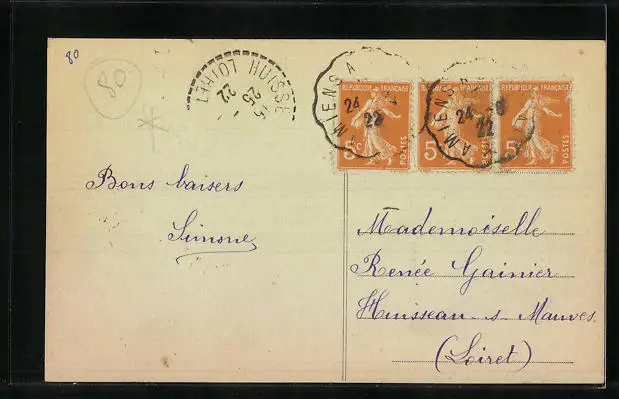 80
80
HUISSE
LOIRET
25
22
AMIENS A
24
22
AMIENS A
24 - 8
22
REPUBLIQUE FRANÇAISE
5c
POSTES
REPUBLIQUE FRANÇAISE
5
POSTES
REPUBLIQUE FRANÇAISE
5
POSTES
Bons baisers
Simone
Mademoiselle
Renée Gainier
Huisseau-s-Mauves
(Loiret)